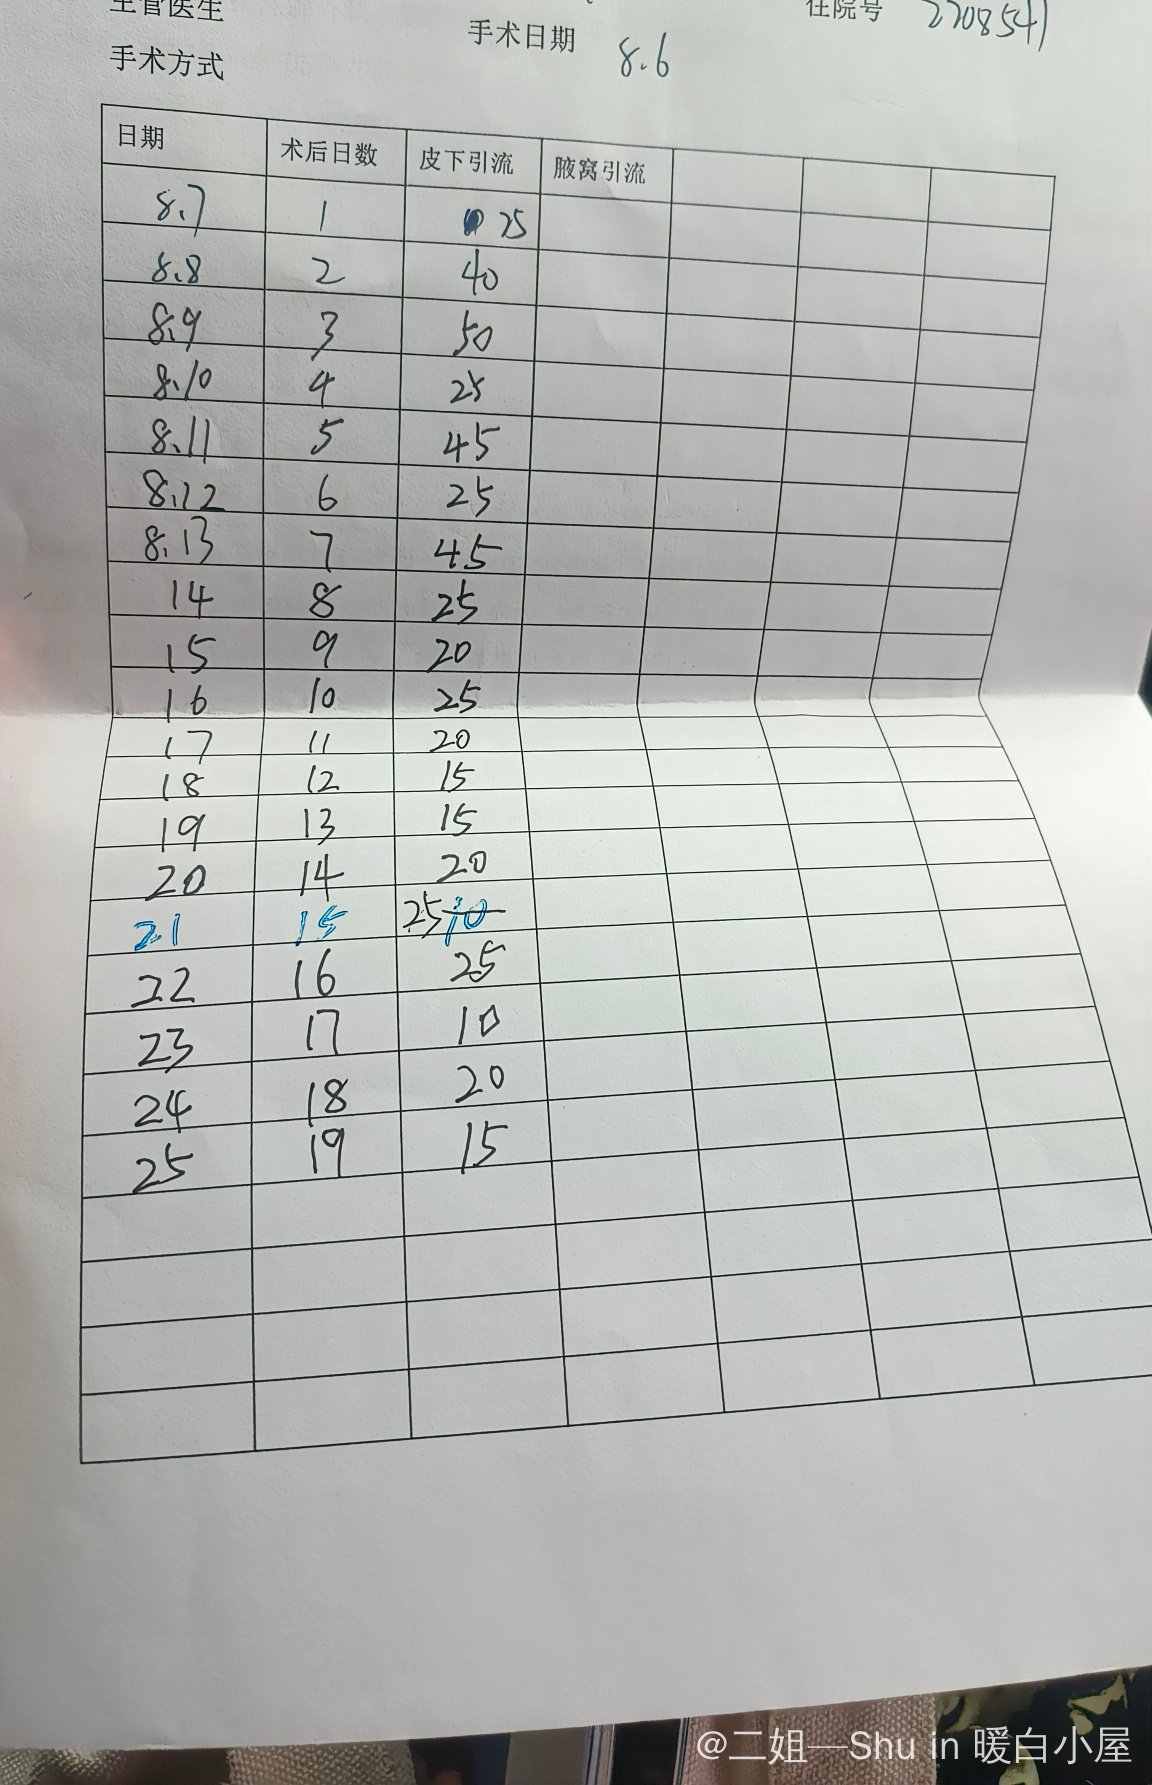 主管医生 住院号 2208541
手术日期 8.6
手术方式
日期 术后日数 皮下引流 腋窝引流
8.7 1 25
8.8 2 40
8.9 3 50
8.10 4 25
8.11 5 45
8.12 6 25
8.13 7 45
14 8 25
15 9 20
16 10 25
17 11 20
18 12 15
19 13 15
20 14 20
21 15 25 10
22 16 25
23 17 10
24 18 20
25 19 15
@二姐—Shu in 暖白小屋